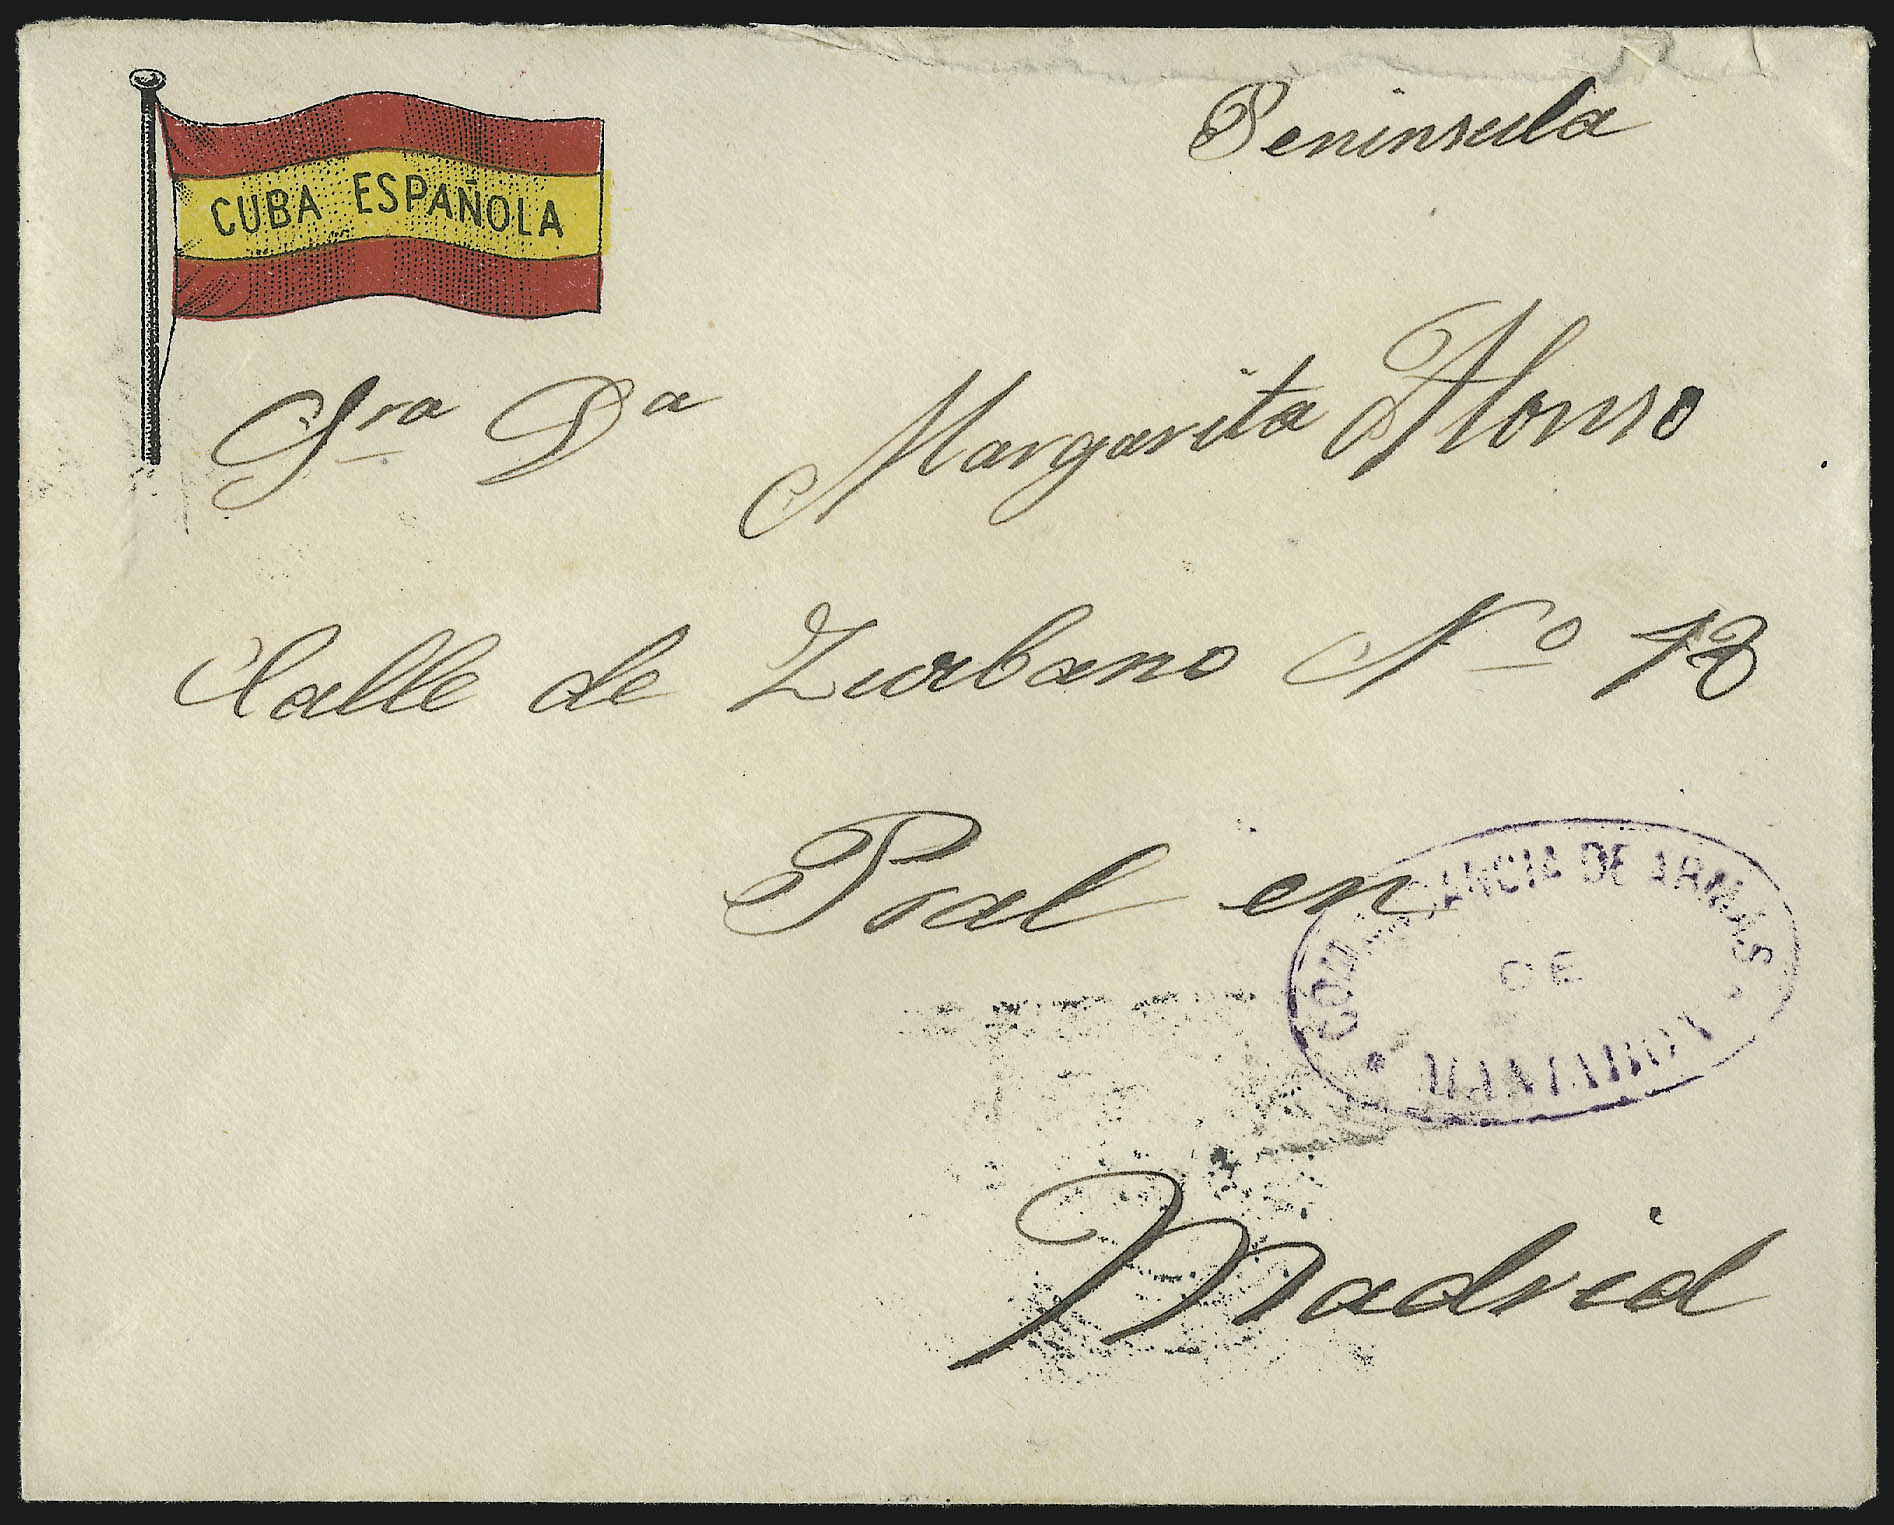 CUBA ESPAÑOLA
Peninsula
Sra Da Margarita Alonso
Calle de Zurbano No 12
Pral en
COMANDANCIA DE ARMAS
DE
Madrid